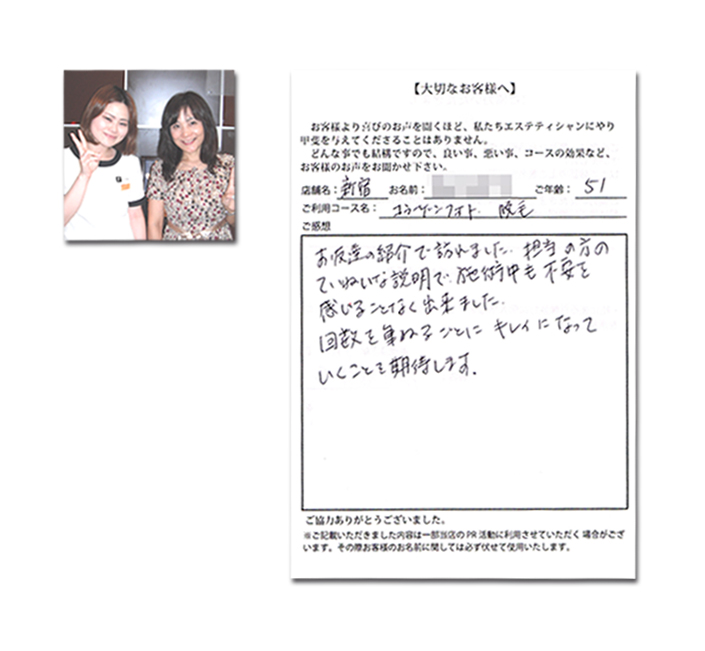 【大切なお客様へ】
お客様より喜びのお声を聞くほど、私たちエステティシャンにやり
甲斐を与えてくださることはありません。
どんな事でも結構ですので、良い事、悪い事、コースの効果など、
お客様のお声をお聞かせ下さい。
店舗名：新宿 お名前： ご年齢：51
ご利用コース名：コラーゲンフォト 脱毛
ご感想
お友達の紹介で訪れました。担当の方の
ていねいな説明で、施術中も不安を
感じることなく出来ました。
回数を重ねるごとにキレイになって
いくことを期待します。
ご協力ありがとうございました。
※ご記載いただきました内容は一部当店のPR活動に利用させていただく場合がござ
います。その際お客様のお名前に関しては必ず伏せて使用いたします。